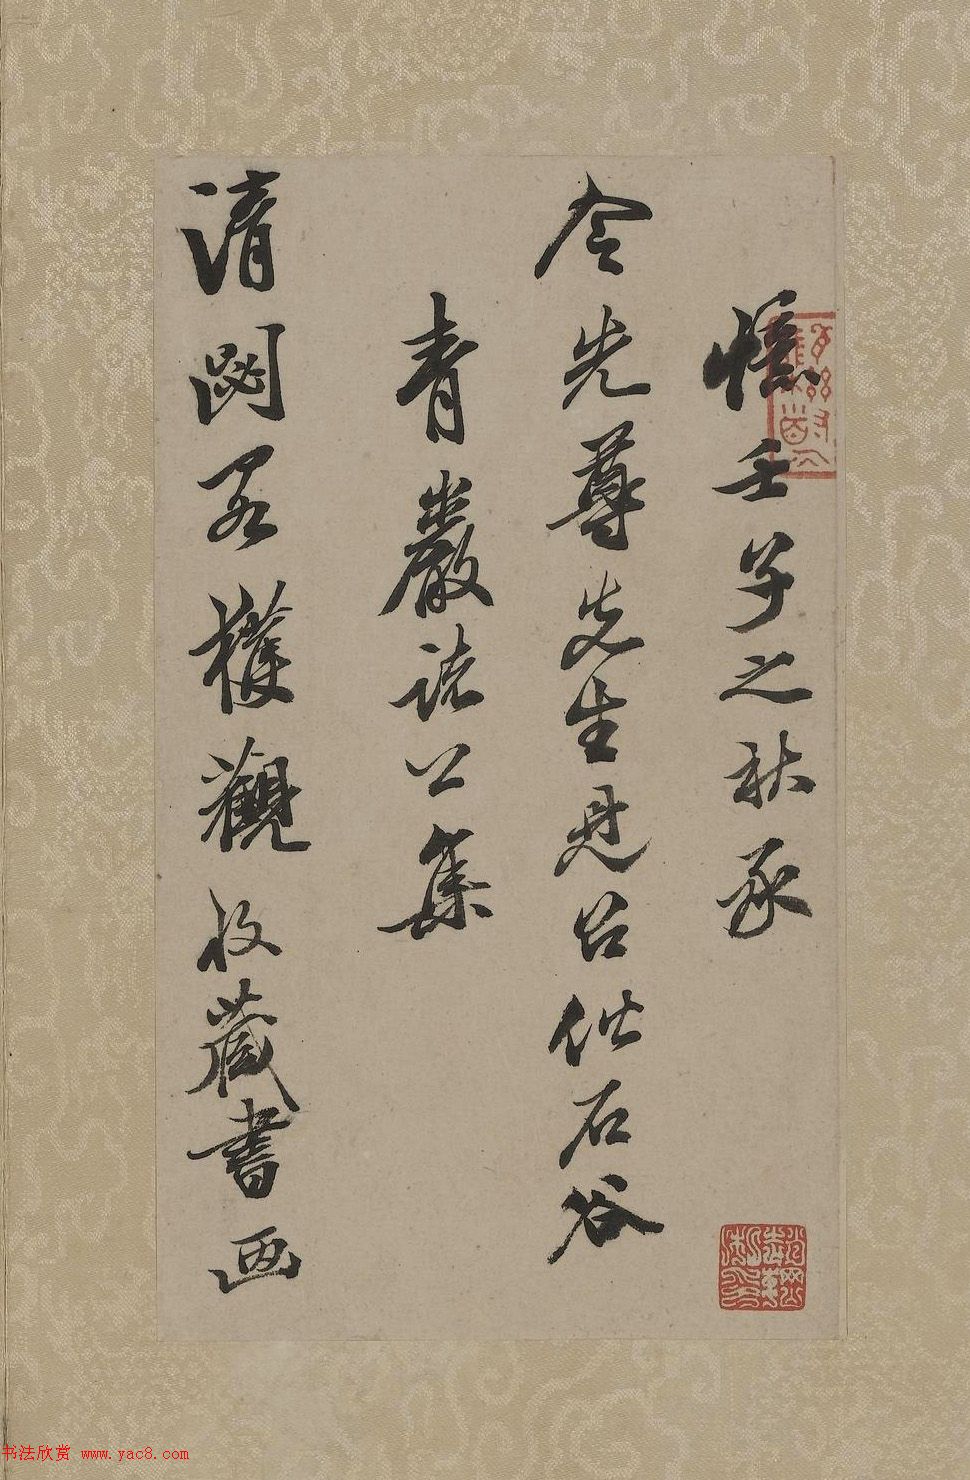 憶壬子之秋承
令先尊先生見召偕石谷
青巖諸公集
清閟閣獲觀收藏書画
书法欣赏 www.yac8.com